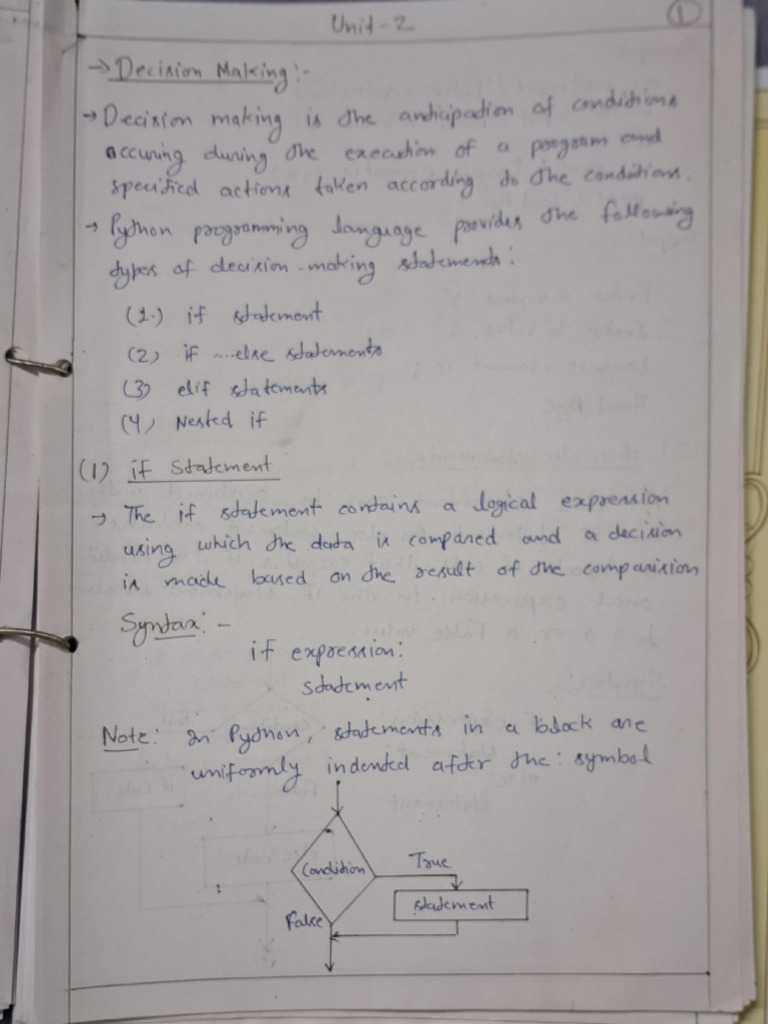 Unit-2
1
→ Decision Making:-
→ Decision making is the anticipation of conditions
occuring during the execution of a program and
specified actions taken according to the conditions.
→ Python programming language provides the following
types of decision-making statements:
(1.) if statement
(2) if ...else statements
(3) elif statements
(4) Nested if
(1) if Statement
→ The if statement contains a logical expression
using which the data is compared and a decision
is made based on the result of the comparision
Syntax:-
if expression:
statement
Note: In Python, statements in a block are
uniformly indented after the : symbol
Condition
True
statement
False